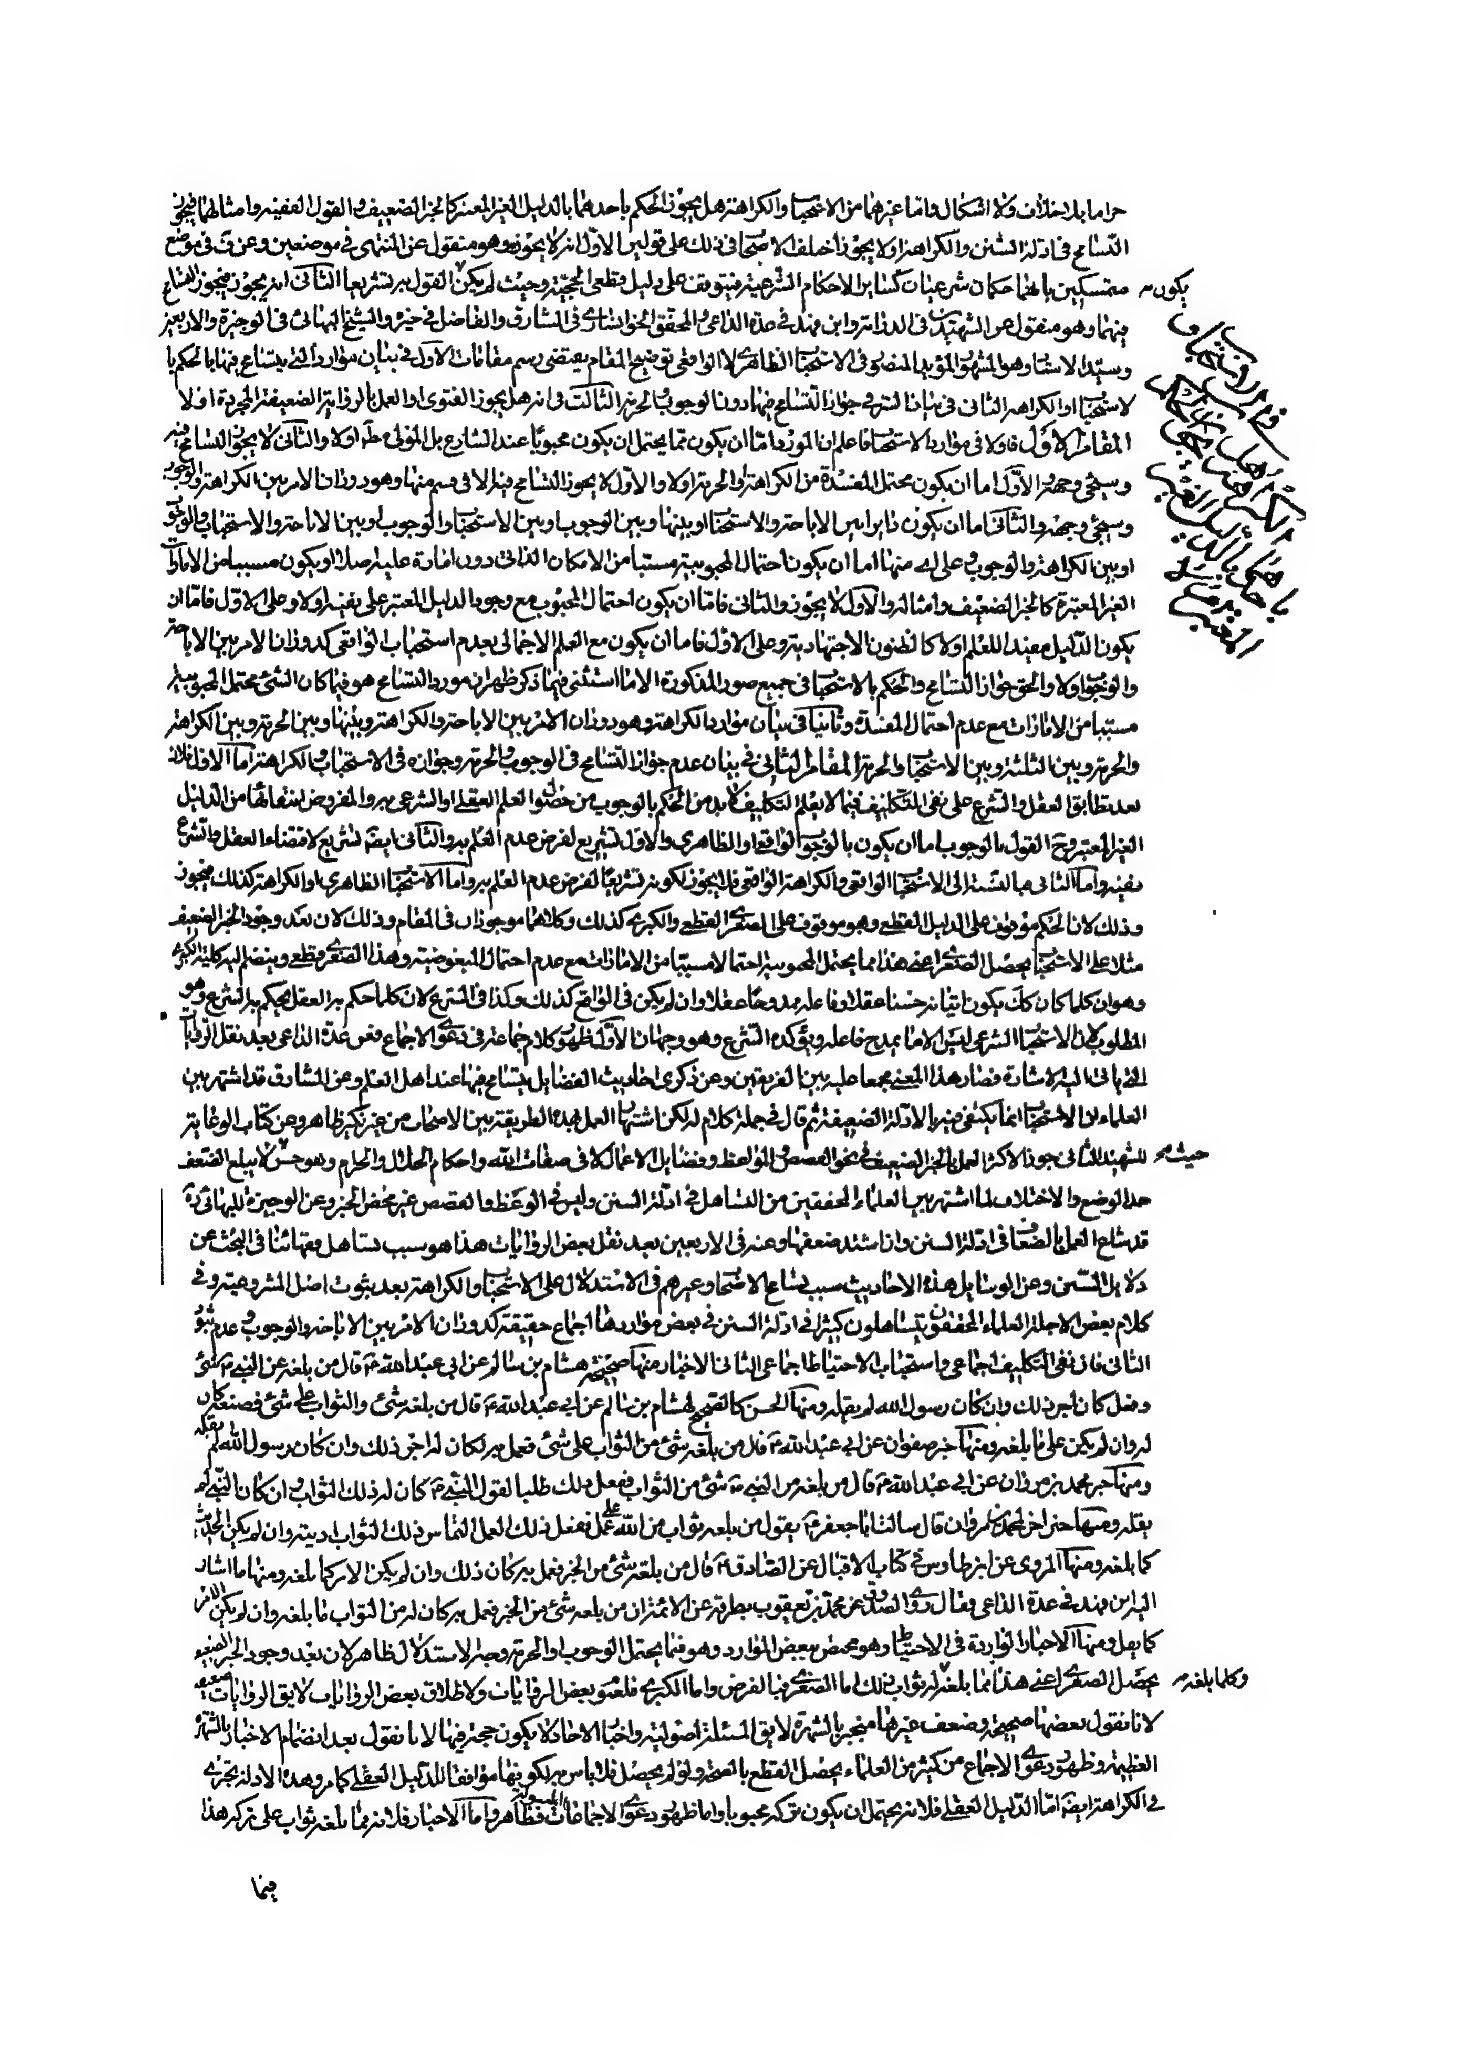 حراما بلا خلاف ولا اشكال واما غيرهما من الاستحباب والكراهة هل يجوز الحكم باحدهما بالدليل الغير المعتبر كالخبر الضعيف والقول الفقيه وامثالهما فيجوز
التسامح فى ادلة السنن والكراهة او لا يجوز اختلف الاصحاب فى ذلك على قولين الاول انه لا يجوز وهو منقول عن المنتهى فى موضعين وعن ق فى موضع
متمسكين بانهما حكمان شرعيان كساير الاحكام الشرعية فيتوقف على دليل قطعى الحجية وحيث لم يكن القول به تشريعا الثانى انه يجوز فيجوز التسامح
يكون
فيهما وهو منقول عن الشهيدين فى الدراية وابن فهد فى عدة الداعى والمحقق الخوانسارى فى المشارق والفاضل فى خيرة والشيخ البهائى فى الوجيزة والاربعين
وسيد الاستاد وهو المشهور المؤيد المنصور فى الاستحباب الظاهرى لا الواقعى توضيح المقام يقتضى رسم مقامات الاول فى بيان موارد التى يتسامح فيها بالحكم با
لاستحباب او الكراهة الثانى فى بيان السر فى جواز التسامح فيها دون الوجوب والحرمة الثالث فى انه هل يجوز الفتوى والعمل بالرواية الضعيفة المجردة او لا
المقام الاول فاولا فى موارد الاستحباب فاعلم ان المورد اما ان يكون مما يحتمل ان يكون محبوبا عند الشارع بل المولى طرا اولا والثانى لا يجوز التسامح فيه
وسيجئ وجهه والاول اما ان يكون محتمل المفسدة من الكراهة والحرمة او لا والاول لا يجوز التسامح فيه الا فى قسم منها وهو دوران الامر بين الكراهة والوجوب
وسيجئ وجهه والثانى اما ان يكون دايرا بين الاباحة والاستحباب او بينها وبين الوجوب او بين الاستحباب والوجوب او بين الاباحة والاستحباب والوجوب
او بين الكراهة والوجوب وعلى اى منها اما ان يكون احتمال المحبوبية مسببا من الامكان الذاتى دون امارة عليه اصلا او يكون مسببا من الامارات
الغير المعتبرة كالخبر الضعيف وامثاله والاول لا يجوز والثانى فاما ان يكون احتمال المحبوب مع وجود الدليل المعتبر على نفيه او لا وعلى الاول فاما ان
يكون الدليل مفيدا للعلم او لا كالظنون الاجتهادية وعلى الاول فاما ان يكون مع العلم الاجمالى بعدم استحباب الواقعى كدوران الامر بين الاباحة
والوجوب او لا والحق جواز التسامح والحكم بالاستحباب فى جميع صور المذكورة الا ما استثنى فيما ذكر ظهر ان مورد التسامح هو فيما كان الشئ محتمل المحبوبية
مسببا من الامارات مع عدم احتمال المفسدة وثانيا فى بيان موارد الكراهة وهو دوران الامر بين الاباحة والكراهة وبينها وبين الحرمة وبين الكراهة
والحرمة وبين الثلثة وبين الاستحباب والحرمة المقام الثانى فى بيان عدم جواز التسامح فى الوجوب والحرمة وجوازه فى الاستحباب والكراهة اما الاول فلانه
بعد تطابق العقل والشرع على نفى التكليف فيما لا يعلم التكليف لابد من الحكم بالوجوب من حصول العلم العقلى او الشرعى به والمفروض انتفائهما من الدليل
الغير المعتبر وح القول بالوجوب اما ان يكون بالوجوب الواقعى او الظاهرى والاول تشريع لفرض عدم العلم به والثانى ايضا تشريع لاقتضاء العقل والشرع
نفيه واما الثانى فبالنسبة الى الاستحباب الواقعى والكراهة الواقعى فلا يجوز لكونه تشريعا لفرض عدم العلم به واما الاستحباب الظاهرى او الكراهة كذلك فيجوز
وذلك لان الحكم موقوف على الدليل القطعى وهو موقوف على الصغرى القطعى والكبرى كذلك وكلاهما موجودان فى المقام وذلك لان بعد وجود الخبر الضعيف
مثلا على الاستحباب يحصل الصغرى اعنى هذا مما يحتمل المحبوبية احتمالا مسببا من الامارات مع عدم احتمال المبغوضية وهذا الصغرى قطعى وينضم اليه كلية الكبرى
وهو ان كلما كان كك يكون اتيانه حسنا عقلا وفاعله ممدوحا عقلا وان لم يكن فى الواقع كذلك وكذا فى الشرع لان كلما حكم به العقل يحكم به الشرع وهو
المطلوب لان الاستحباب الشرعى ليس الا ما يمدح فاعله ويؤكده الشرع وهو وجهان الاول ظهور كلام جماعة فى دعوى الاجماع فعن عدة الداعى بعد نقل الروايات
التى ياتى اليه الاشارة فصار هذا المعنى مجمعا عليه بين الفريقين وعن ذكرى احاديث الفضايل يتسامح فيها عند اهل العلم وعن المشارق قد اشتهر بين
العلماء ان الاستحباب انما يكتفى فيه بالادلة الضعيفة ثم قال فى جملة كلام له لكن اشتهار العمل بهذه الطريقة بين الاصحاب من غير نكير ظاهر وعن كتاب الرعاية
للشهيد الثانى جوز الاكثر العمل بالخبر الضعيف فى نحو القصص والمواعظ وفضايل الاعمال لا فى صفات الله واحكام الحلال والحرام وهو حسن لا يبلغ الضعف
حيث
حد الوضع والاختلاق لما اشتهر بين العلماء المحققين من التساهل فى ادلة السنن وليس فى الوعظ والقصص غير محض الخبر وعن الوجيزة للبهائى ره
قد شاع العمل بالضعاف فى ادلة السنن وان اشتد ضعفها وعنه فى الاربعين بعد نقل بعض الروايات هذا هو سبب تساهل فقهائنا فى البحث عن
دلايل السنن وعن الوسايل هذه الاحاديث سبب تسامح الاصحاب وغيرهم فى الاستدلال على الاستحباب والكراهة بعد ثبوت اصل المشروعية وفى
كلام بعض الاجلة العلماء المحققون يتساهلون كثيرا فى ادلة السنن فى بعض مواردها اجماع حقيقة كدوران الامر بين الاباحة والوجوب وعدم ثبوت
الثانى فان نفى التكليف اجماعى واستحباب الاحتياط اجماعى الثانى الاخبار منها صحيحة هشام بن سالم عن ابى عبد الله ع قال من بلغه عن النبى ص شئ
وفعل كان اجر ذلك وان كان رسول الله لم يقله ومنها الحسن كالصحيح لهشام بن سالم عن ابى عبد الله ع قال من بلغه شئ والثواب على شئ فصنعه كان
له وان لم يكن على ما بلغه ومنها خبر صفوان عن ابى عبد الله ع قال من بلغه شئ من الثواب على شئ فعمل به لكان له اجر ذلك وان كان رسول الله لم يقله
ومنها خبر محمد بن مروان عن ابى عبد الله ع قال من بلغه من النبى ص شئ من الثواب ففعل ذلك طلبا لقول النبى ص كان له ذلك الثواب وان كان النبى لم
يقله ومنها خبر اخر لمحمد بن مروان قال سالت ابا جعفر ع يقول من بلغه ثواب من الله على عمل ففعل ذلك العمل التماس ذلك الثواب اوتيه وان لم يكن الحديث
كما بلغه ومنها المروى عن ابن طاوس فى كتاب الاقبال عن الصادق ع قال من بلغه شئ من الخير فعمل به كان ذلك وان لم يكن الامر كما بلغه ومنها ما اشار
اليه ابن فهد فى عدة الداعى وقال روى الصدوق عن محمد بن يعقوب بطرقه عن الائمة ان من بلغه شئ من الخير فعمل به كان له من الثواب ما بلغه وان لم يكن الامر
كما نقل ومنها الاخبار الواردة فى الاحتياط وهو مختص ببعض الموارد وهو فيما يحتمل الوجوب او الحرمة وجه الاستدلال ظاهر لان بعد وجود الخبر الضعيف
يحصل الصغرى اعنى هذا مما بلغه ثواب فى ذلك اما الصغرى فبالفرض واما الكبرى فلعموم بعض الروايات ولاطلاق بعض الروايات لا يق الروايات ضعيفه
وكلما بلغه
لانا نقول بعضها صحيحة وضعف غيرها منجبر بالشهرة لا يق المسئلة اصولية واخبار الاحاد لا يكون حجة فيها لانا نقول بعد انضمام الاخبار بالشهرة
العظيمة وظهور دعوى الاجماع من كثير من العلماء يحصل القطع بالصحة ولو لم يحصل فلا باس به لكونها موافقا للدليل العقلى كما مر وهذه الادلة يجرى
فى الكراهة ايضا اما الدليل العقلى فلانه يحتمل ان يكون تركه محبوبا واما ظهور دعوى الاجماعات المنقولة فظاهر واما الاخبار فلانه مما بلغه ثواب على تركه هذا
فيما